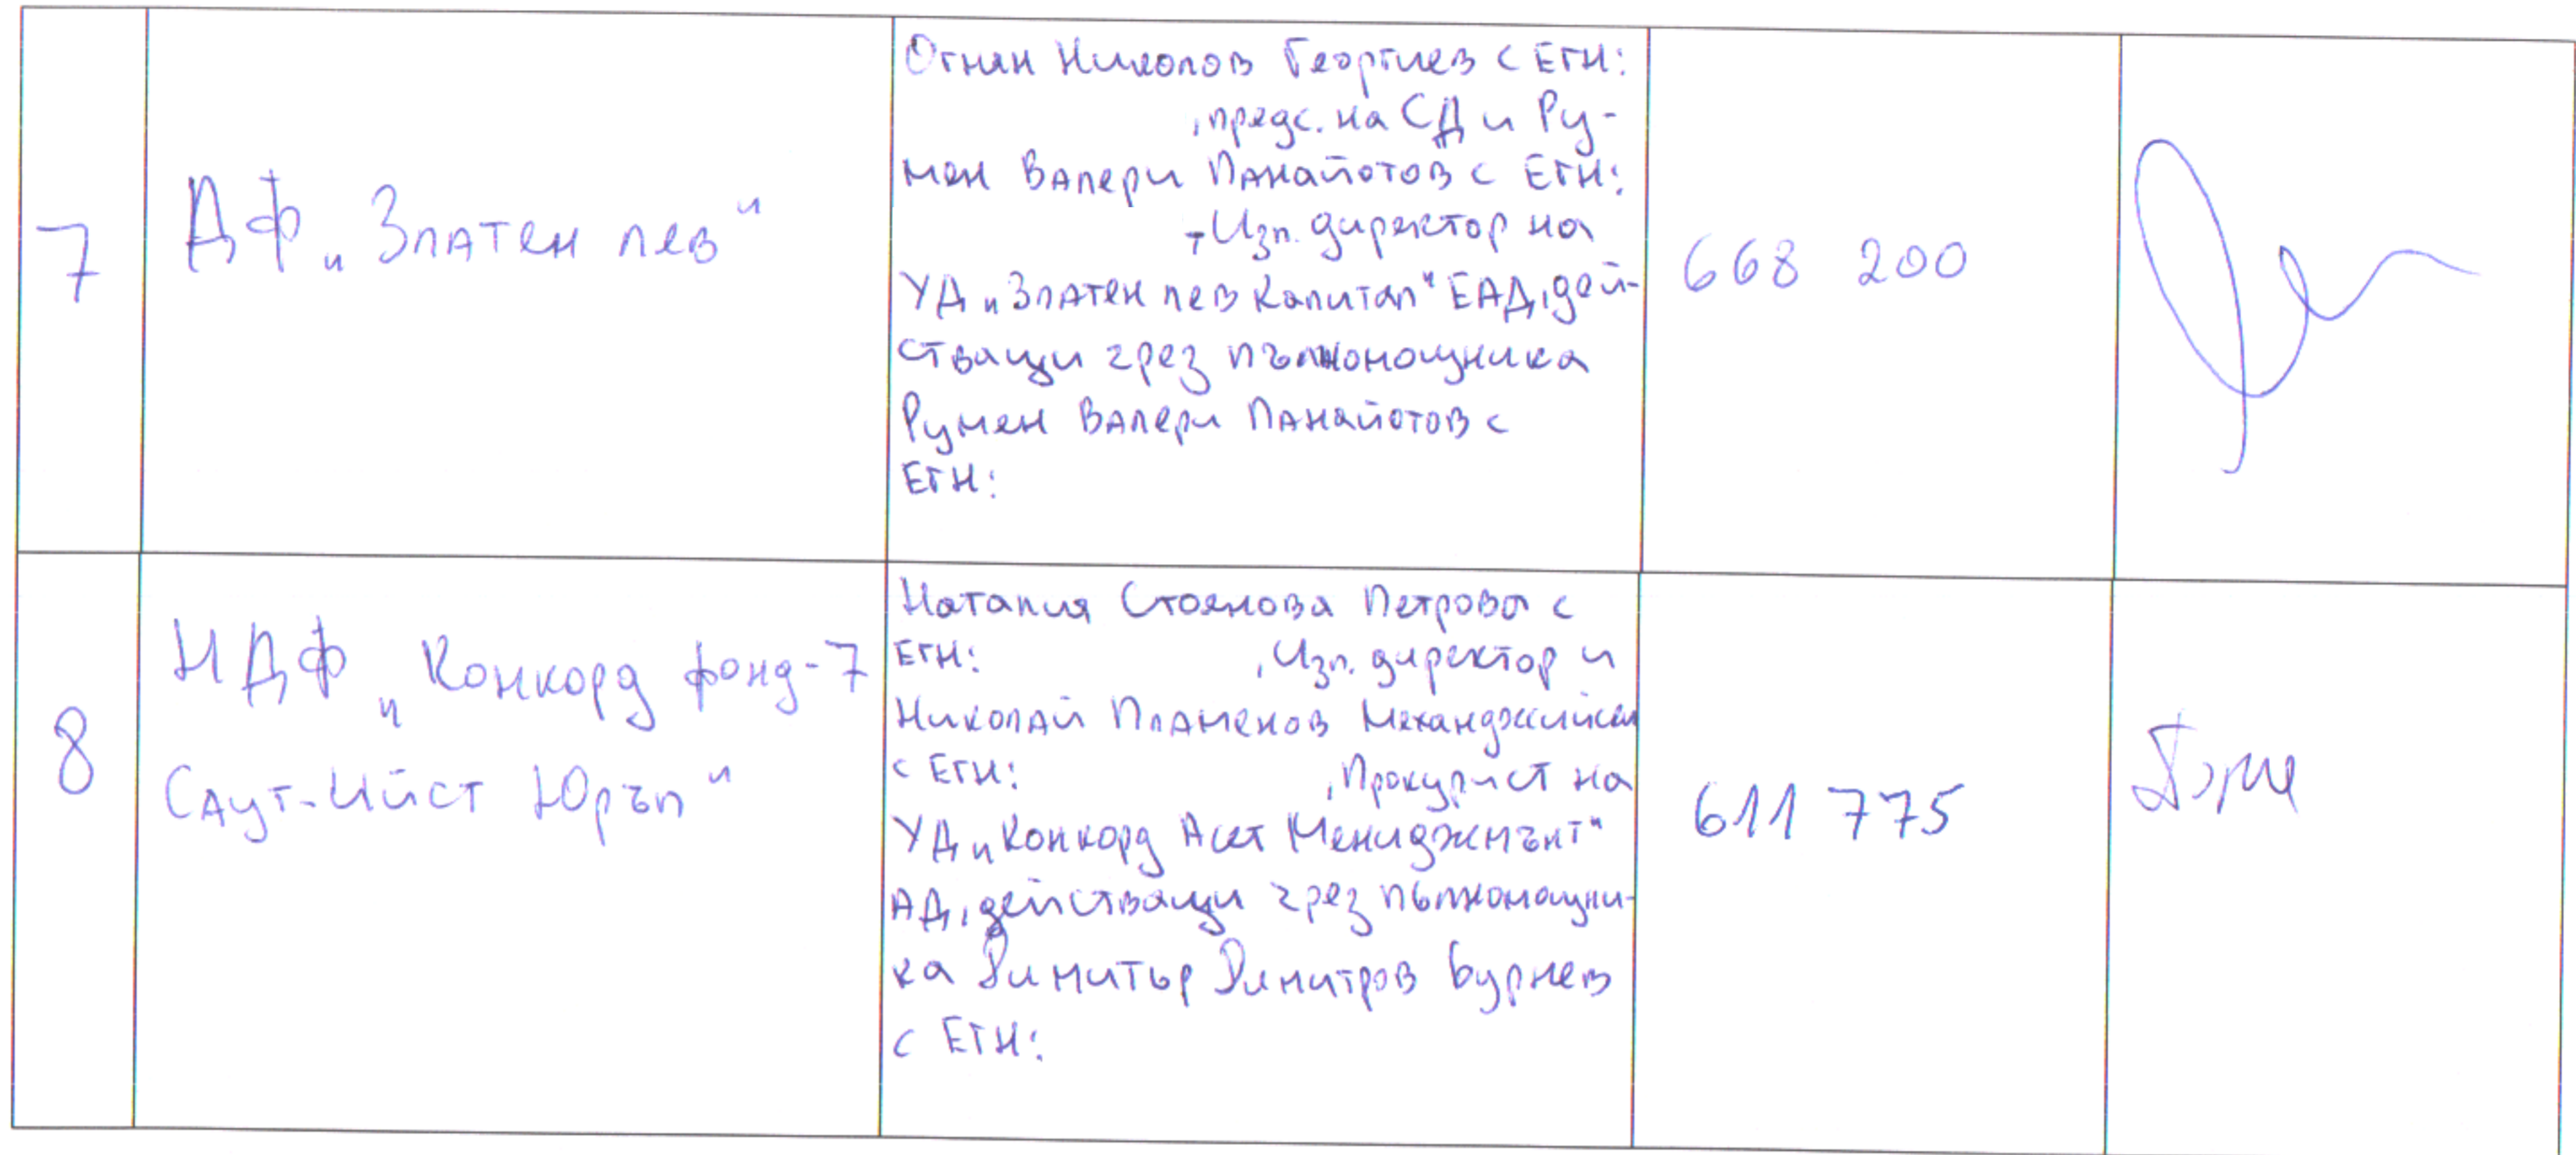 7
ДФ „Златен лев“
Огнян Николов Георгиев с ЕГН:
, предс. на СД и Ру-
мен Валери Панайотов с ЕГН:
- Изп. директор на
УД „Златен лев Капитал“ ЕАД, дей-
стващи чрез пълномощника
Румен Валери Панайотов с
ЕГН:
668 200
8
НДФ „Конкорд фонд-7
Саут-Ийст Юръп“
Наталия Стоянова Петрова с
ЕГН: , Изп. директор и
Николай Пламенов Механджийски
с ЕГН: , Прокурист на
УД „Конкорд Асет Мениджмънт“
АД, действащи чрез пълномощни-
ка Димитър Димитров Бурнев
с ЕГН:
611 775